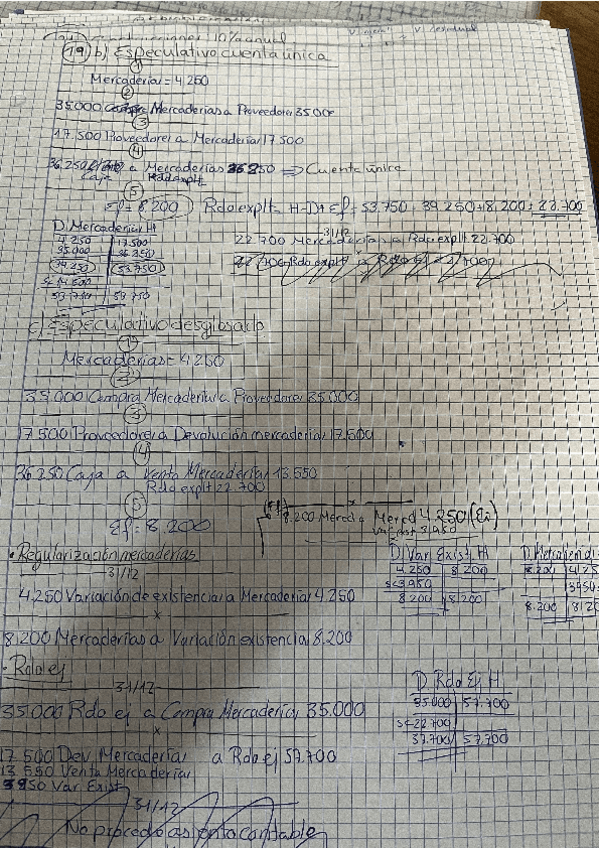 10% anual
19) b) Especulativo cuenta única
1
Mercaderías = 4.250
2
35.000 Mercaderías a Proveedores 35.000
3
17.500 Proveedores a Mercaderías 17.500
4
36.250 Caja a Mercaderías 36.250 ⇒ Cuenta única
5
Ef = 8.200 Rdo explt = H-D+Ef = 53.750 - 39.250 + 8.200 = 22.700
D Mercaderías H
4.250 17.500
35.000 36.250
39.250 53.750
53.750 53.750
31/12
22.700 Mercaderías a Rdo explt 22.700
c) Especulativo desglosado
1
Mercaderías = 4.250
2
35.000 Compra Mercaderías a Proveedores 35.000
3
17.500 Proveedores a Devolución mercaderías 17.500
4
36.250 Caja a Venta Mercaderías 13.550
Rdo explt 22.700
5
Ef = 8.200
8.200 Mercad a Mercad 4.250 (Ei)
Var exist 3.950
• Regularización mercaderías
31/12
4.250 Variación de existencias a Mercaderías 4.250
x
8.200 Mercaderías a Variación existencia 8.200
D Var Exist H
4.250 8.200
Sa 3.950
8.200 8.200
• Rdo ej
31/12
35.000 Rdo ej a Compra Mercaderías 35.000
x
17.500 Dev Mercaderías a Rdo ej 57.700
13.550 Venta Mercaderías
3950 Var. Exist
D Rdo Ej H
35.000 57.700
Sa 22.700
57.700 57.700
31/12
No procede asiento contable